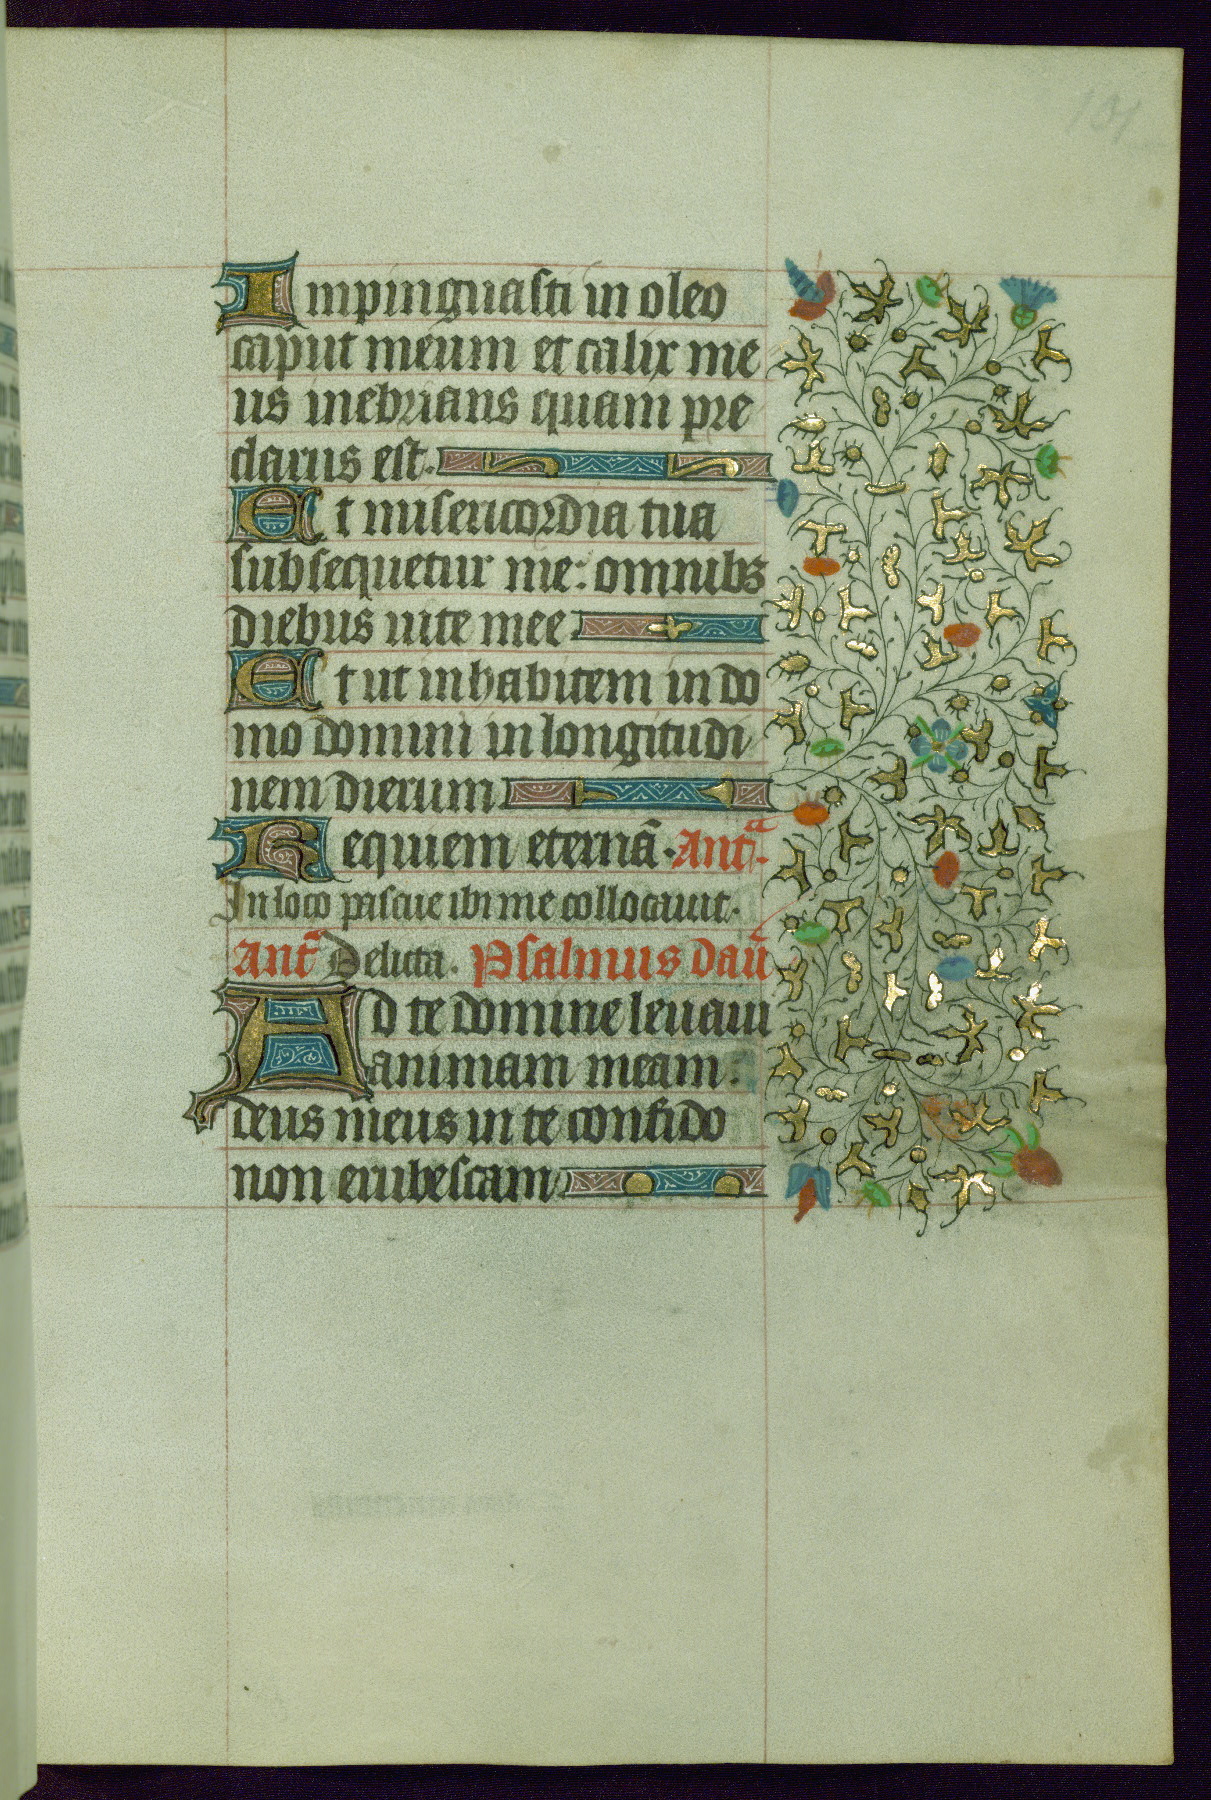 101
Impinguasti in oleo
caput meum et calix me
us inebrians quam pre
clarus est.
Et misericordia tua
subsequetur me: omnibꝫ
diebus uite mee
Et ut inhabitem in do
mo domini in longitudi
nem dierum
Requiem eternã. Antᵃ.
In loco pascue ibi me collocauit.
Ant̃ Delicta. Psalmus daũ
Ad te domine leuaui
animam meam.
deus meus in te confido
non erubescam